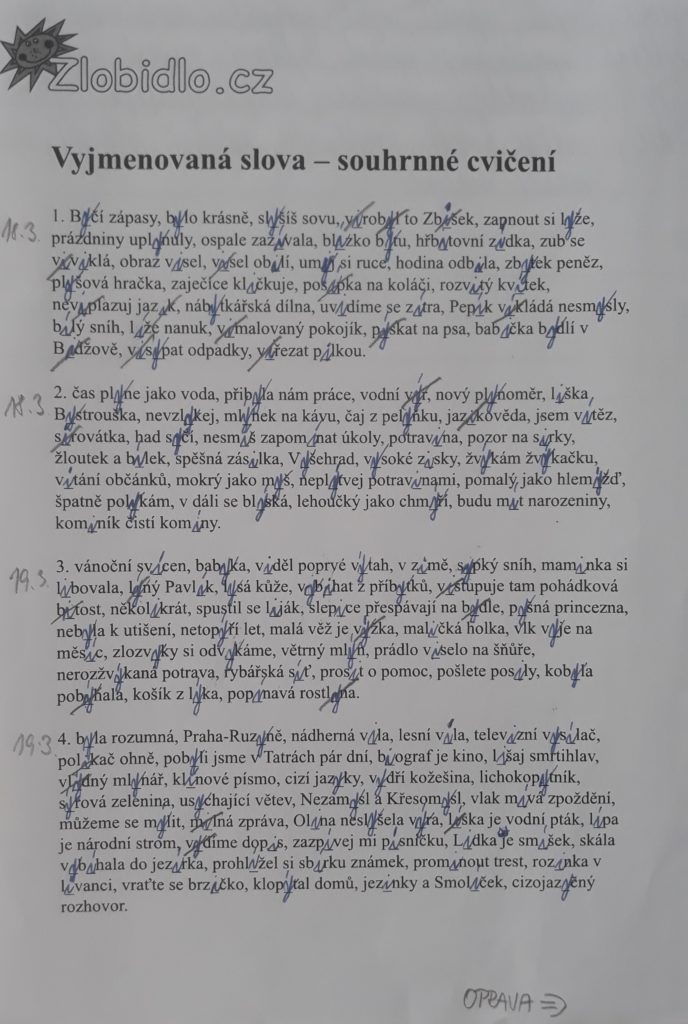 Zlobidlo.cz
Vyjmenovaná slova – souhrnné cvičení
18.3. 1. Býčí zápasy, bylo krásně, slyšíš sovu, to Zbyšek, zapnout si lyže,
prázdniny uplynuly, ospale zazívala, blízko bytu, hřbitovní zídka, zub se
viklá, obraz visel, obilí, umyj si ruce, hodina odbila, zbytek peněz,
plyšová hračka, zaječice kličkuje, posypka na koláči, rozvitý kvítek,
nevyplazuj jazyk, nábytkářská dílna, uvidíme se zítra, Pepík vykládá nesmysly,
bílý sníh, líže nanuk, vymalovaný pokojík, pískat na psa, babička bydlí v
vysypat odpadky, vyřezat pilkou.
18.3 2. čas plyne jako voda, přibyla nám práce, vodní nový plynoměr, liška
Bystrouška, nevzlykej, mlýnek na kávu, čaj z pelyňku, jazykověda, jsem vítěz,
syrovátka, had syčí, nesmíš zapomínat úkoly, potravina, pozor na sirky,
žloutek a bílek, spěšná zásilka, Vyšehrad, vysoké zisky, žvýkám žvýkačku,
vítání občánků, mokrý jako myš, neplýtvej potravinami, pomalý jako hlemýžď,
špatně polykám, v dáli se blýská, lehoučký jako chmýří, budu mít narozeniny,
kominík čistí komíny.
19.3. 3. vánoční svícen, babyka, viděl poprvé výtah, v zimě, sypký sníh, maminka si
libovala, líný Pavlík, lysá kůže, vybíhat z příbytků, vystupuje tam pohádková
bytost, několikrát, spustil se liják, slepice přespávají na bidle, pyšná princezna,
nebyla k utišení, netopýři let, malá věž je maličká holka, vlk vyje na
měsíc, zlozvyky si odvykáme, větrný mlýn, prádlo viselo na šňůře,
nerozžvýkaná potrava, rybářská síť, prosit o pomoc, pošlete posily, kobyla
pobíhala, košík z lýka, popínavá rostlina.
19.3 4. byla rozumná, Praha-Ruzyně, nádherná vila, lesní víla, televizní vysílač,
polykač ohně, pobyli jsme v Tatrách pár dní, biograf je kino, lišaj smrtihlav,
vlídný mlynář, klínové písmo, cizí jazyky, vydří kožešina, lichokopytník,
syrová zelenina, usychající větev, Nezamysl a Křesomysl, vlak mívá zpoždění,
můžeme se mýlit, mylná zpráva, Olina neslyšela výra, lyska je vodní pták, lípa
je národní strom, vidíme dopis, zazpívej mi písničku, Lidka je smíšek, skála
vybíhala do jezírka, prohlížel si sbírku známek, prominout trest, rozinka v
lívanci, vraťte se brzičko, klopýtal domů, jezinky a Smolíček, cizojazyčný
rozhovor.
OPRAVA ⇒